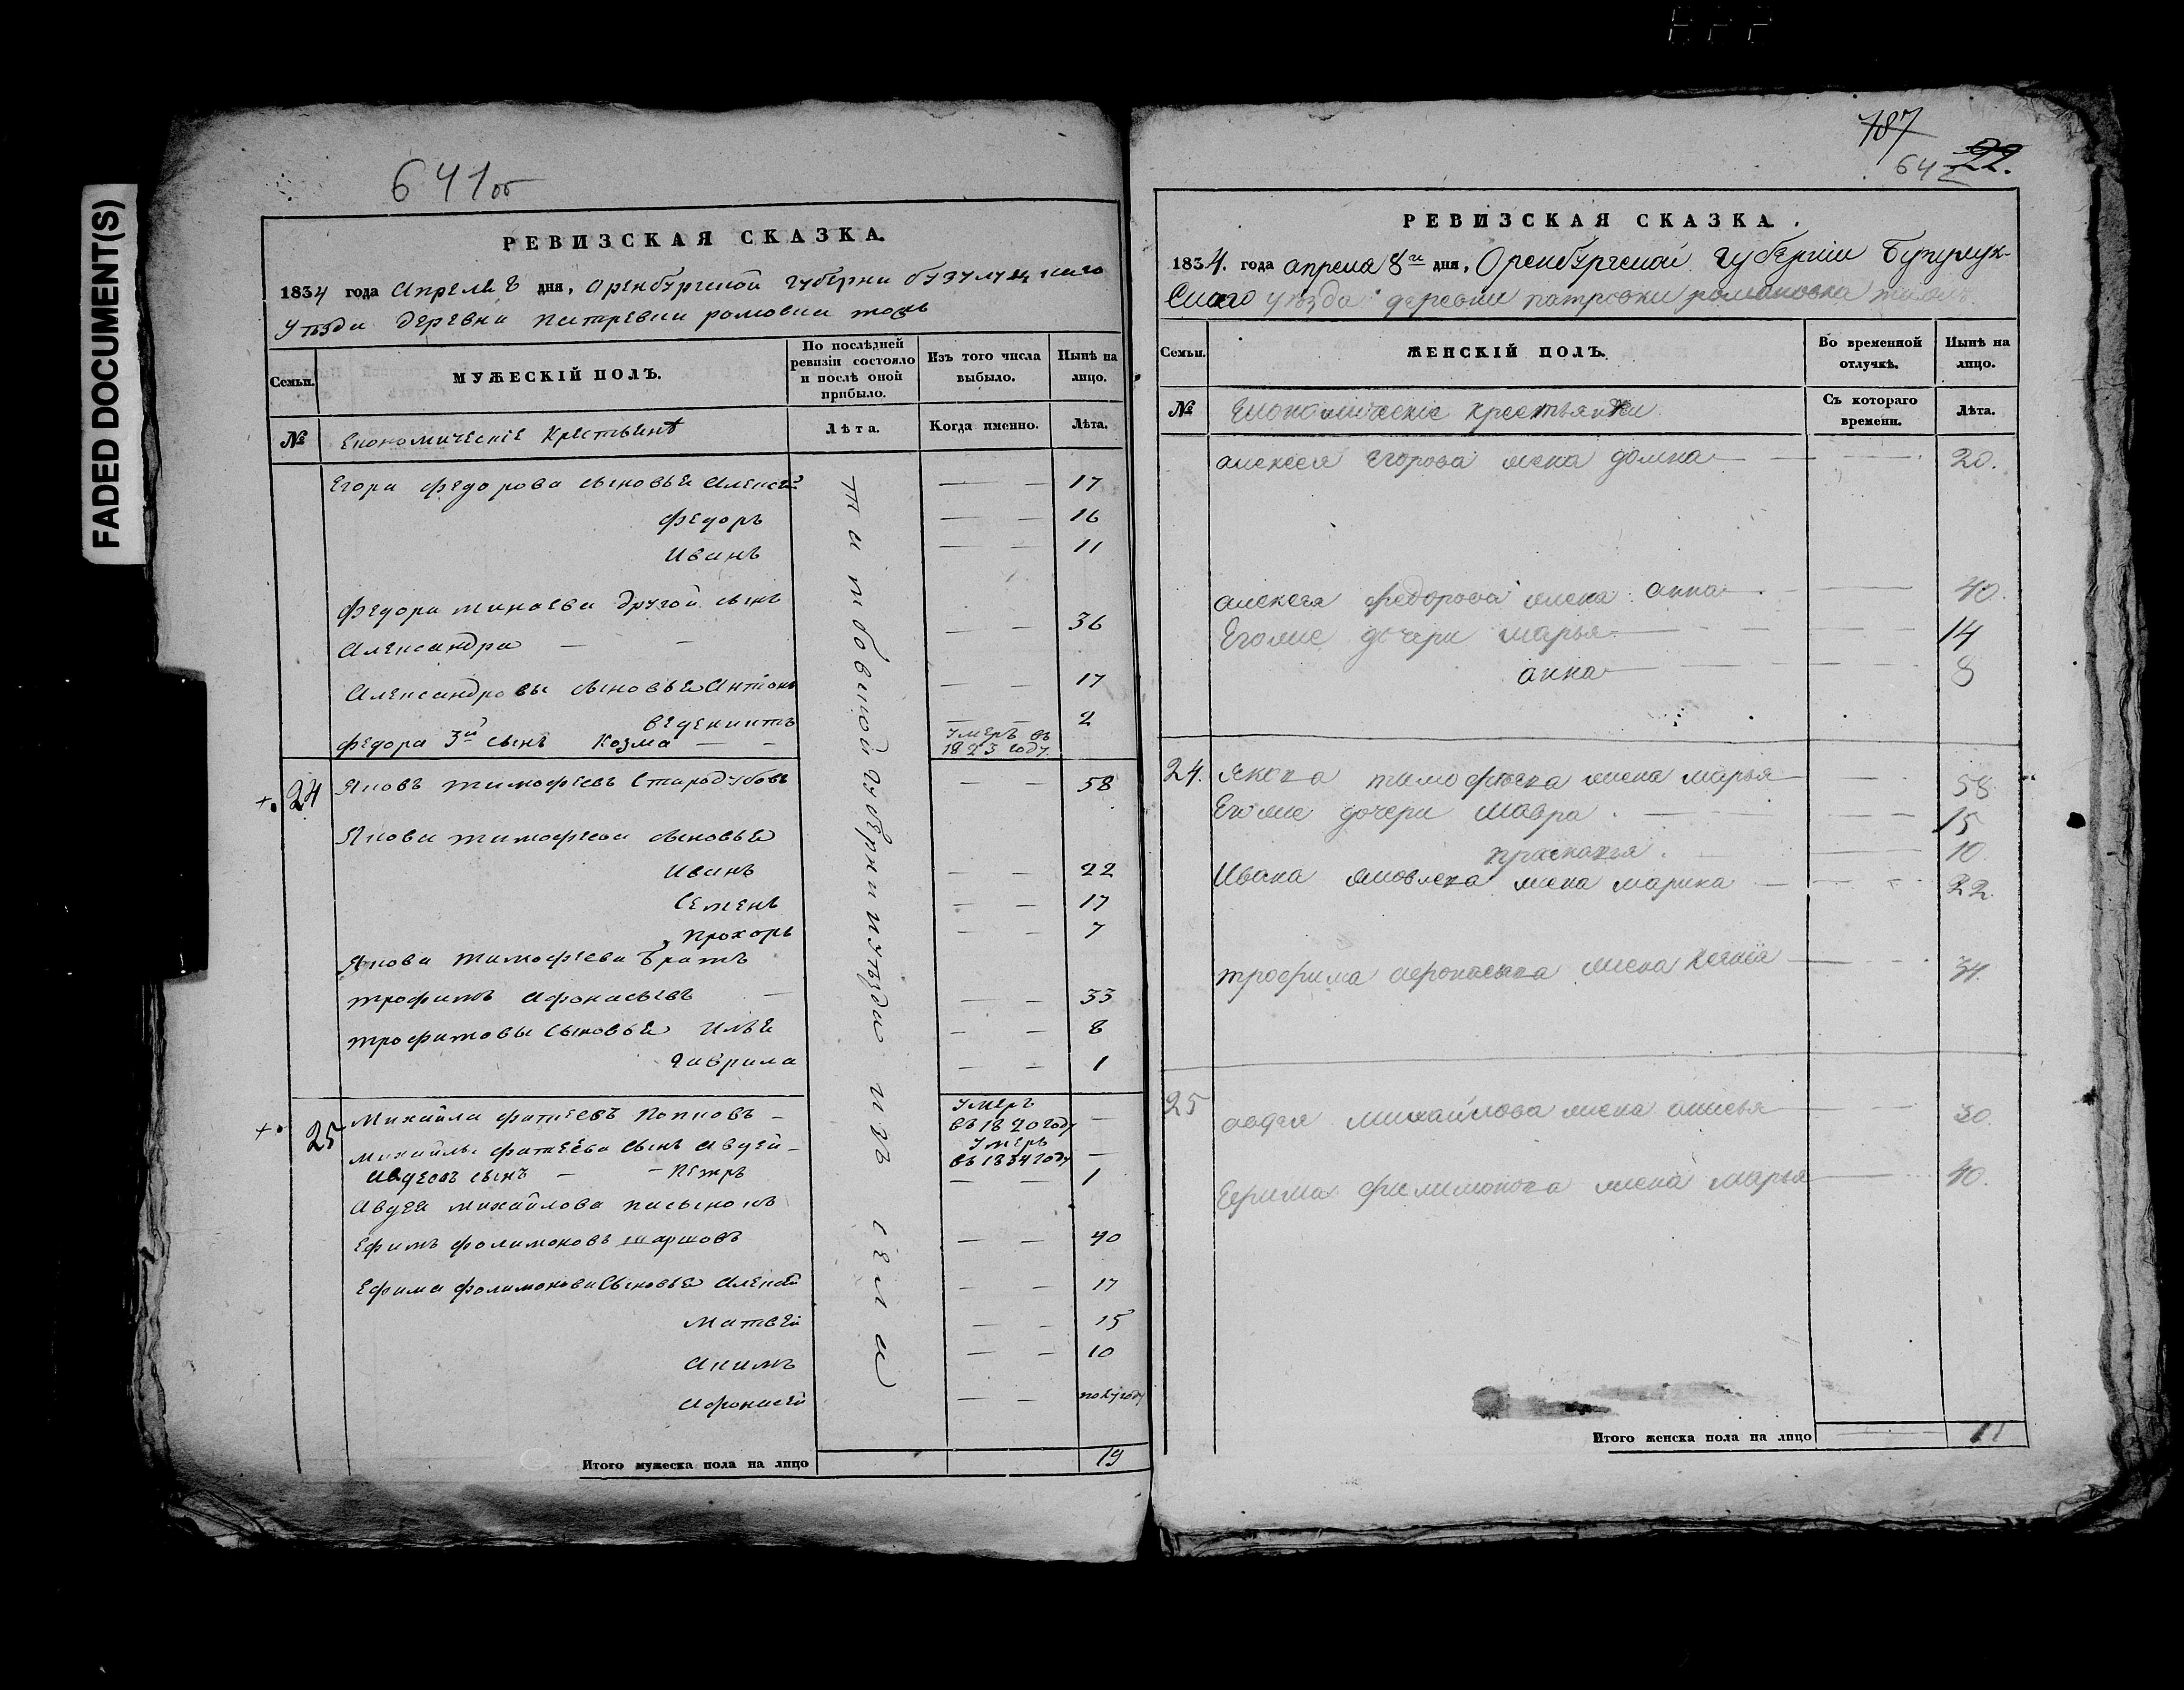 FADED DOCUMENT(S)
641об
РЕВИЗСКАЯ СКАЗКА.
1834 года Апреля 8 дня, Оренбургской губерни бузулуцкаго
уезда деревни
Семьи.
МУЖЕСКІЙ ПОЛЪ.
По послѣдней ревизіи состояло и послѣ оной прибыло.
Изъ того числа выбыло.
Нынѣ на лицо.
№
Економическіе Крестьянѣ
Лѣта.
Когда именно.
Лѣта.
Егора Федорова сыновья Алексей — — 17
Федоръ — — 16
Иванъ — — 11
Федора минаева другой сынъ
Александра — — — — 36
Александровы сыновья Антонъ — — 17
Веденихтъ — — 2
Федора 3й сынъ Козма — — умеръ въ 1823 году.
24 Яковъ тимофеевъ Стародубовъ — — 58
Якова тимофеева сыновья
Иванъ — — 22
Семенъ — — 17
Прохоръ — — 7
Якова тимофеева братъ
трофимъ Афонасьевъ — — — 33
трофимовы сыновья Илья — — 8
Гаврила — — 1
25 Михайла фатеевъ Попковъ — умеръ въ 1820 году —
михайлы фатеева сынъ Авдей — умеръ въ 1834 году —
Авдеевъ сынъ — — Петръ — — 1
Авдея михайлова пасынокъ
Ефимъ фолимоновъ шаршовъ — — 40
Ефима фолимонова сыновья Алексей — — 17
Матвей — — 15
Акимъ — — 10
Афонасей — — полугоду
губернии уезда изъ села
Итого мужеска пола на лицо 19
187
642 22.
РЕВИЗСКАЯ СКАЗКА.
1834. года апреля 8го дня, Оренбургской губерніи Бузулук-
скаго уезда деревни
Семьи.
ЖЕНСКІЙ ПОЛЪ.
Во временной отлучкѣ.
Нынѣ на лицо.
№
Економические крестьянки
Съ котораго времени.
Лѣта.
алексея Егорова жена домна — — — 20.
алексея федорова жена анна — — 40.
Егоже дочери марья — — — 14
анна — — — 8
24. якова тимофеева жена марья — — 58
Егоже дочери Мавра — — — 15
прасковья — — 10
Ивана яковлева жена марина — — 22.
трофима афонасьева жена Ксенія — — 34.
25 авдея михайлова жена анисья — — 30.
Ефима филимонова жена марья — — 40.
Итого женска пола на лицо 11